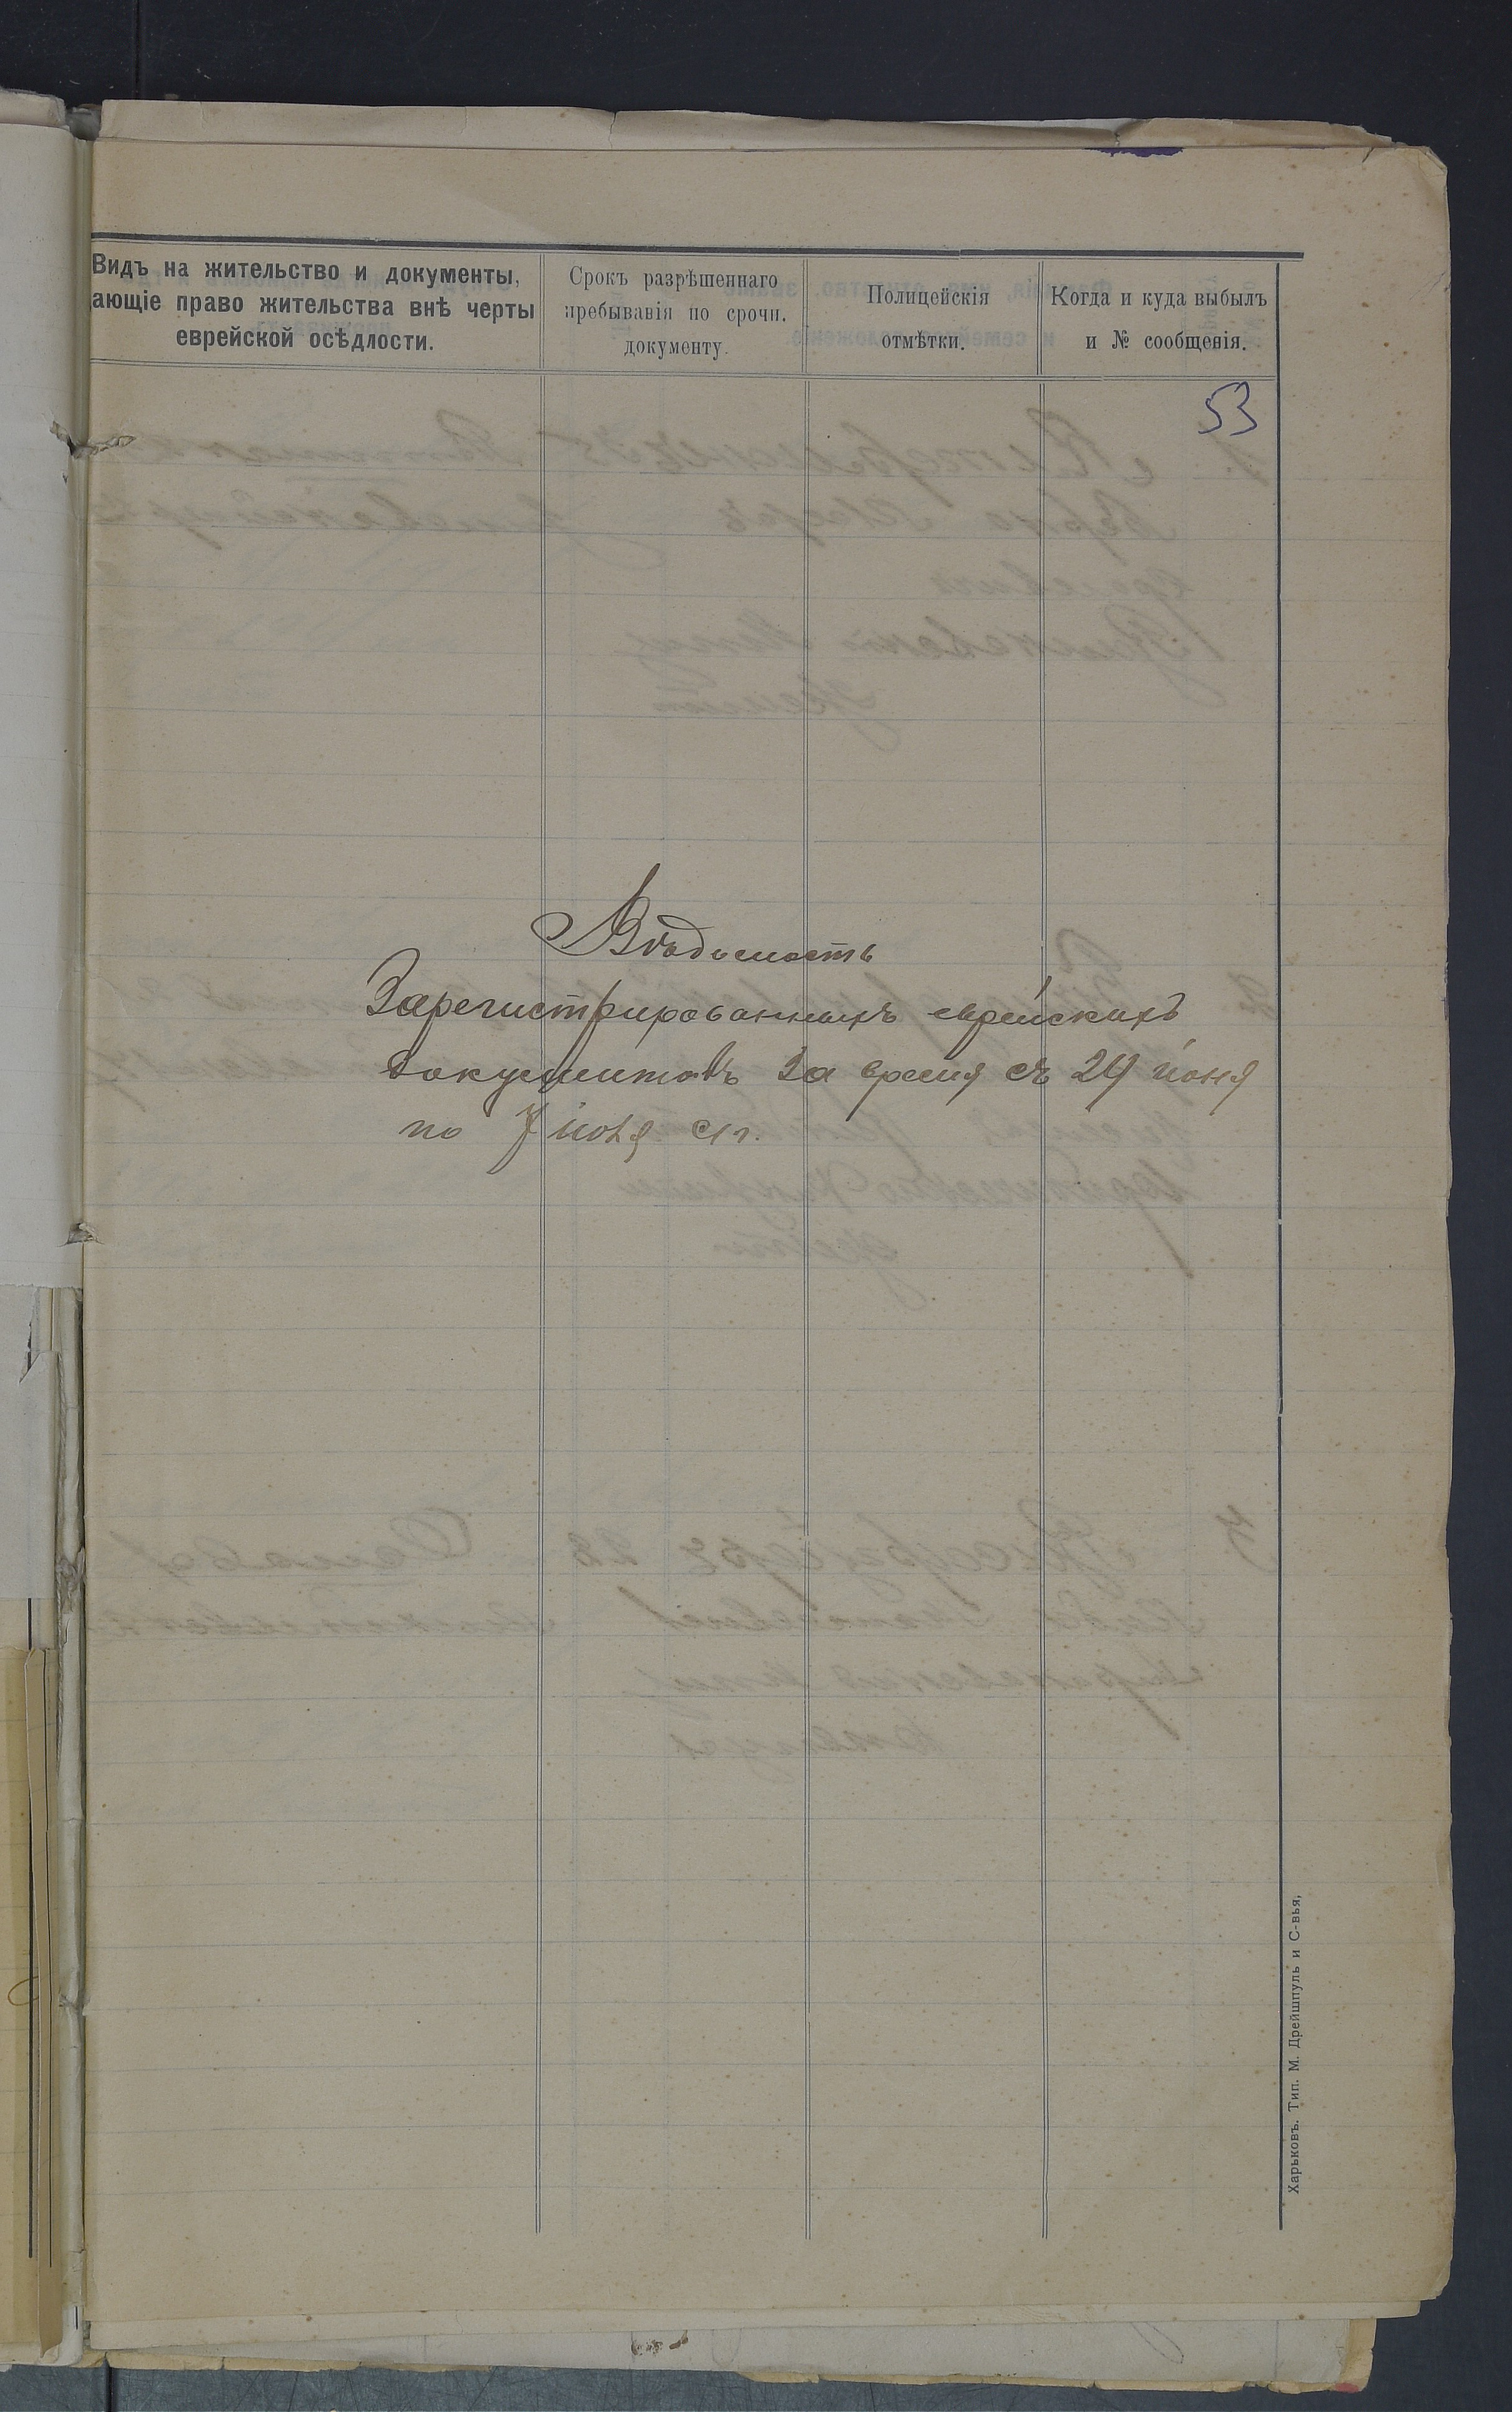 Видъ на жительство и документы,
ающіе право жительства внѣ черты
еврейской осѣдлости.
Срокъ разрѣшеннаго
пребыванія по срочн.
документу.
Полицейскія
отмѣтки.
Когда и куда выбылъ
и № сообщенія.
53
Вѣдомость
Зарегистрированныхъ еврейскихъ
документовъ за время съ 29 іюня
по 7 іюля с/г.
Харьковъ. Тип. М. Дрейшпуль и С-вья,